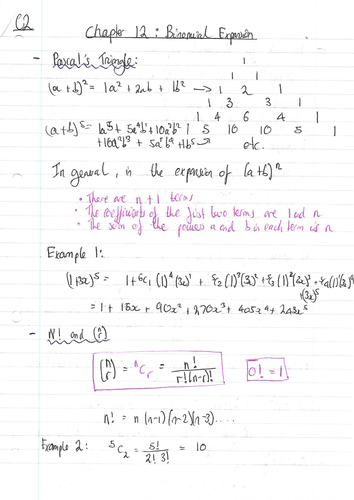 C2
Chapter 12 : Binomial Expansion
- Pascal's Triangle:
1
1 1
(a + b)² = 1a² + 2ab + 1b² → 1 2 1
1 3 3 1
1 4 6 4 1
(a + b)⁵ = 1a⁵ + 5a⁴b¹ + 10a³b² 1 5 10 10 5 1
+ 10a²b³ + 5a¹b⁴ + 1b⁵ etc.
In general, in the expansion of (a+b)ⁿ
• There are n + 1 terms
• The coefficients of the first two terms are 1 and n
• The sum of the powers a and b in each term is n
Example 1:
(1+3x)⁵ = 1 + ⁵C₁ (1)⁴ (3x)¹ + ⁵C₂ (1)³ (3x)² + ⁵C₃ (1)² (3x)³ + ⁵C₄ (1)¹ (3x)⁴
+ (3x)⁵
= 1 + 15x + 90x² + 270x³ + 405x⁴ + 243x⁵
- N! and (n r)
(n r) = ⁿCᵣ = n! / r!(n-r)! 0! = 1
n! = n (n-1)(n-2)(n-3)....
Example 2: ⁵C₂ = 5! / 2! 3! = 10